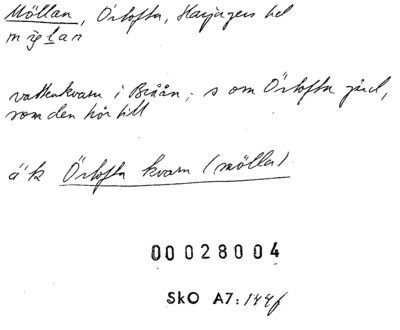 Möllan, Örtofta, Harjagers hd
vattenkvarn i Braån; s om Örtofta gård,
som den hör till
äk Örtofta kvarn (mölla)
00028004
SkO A7:144f